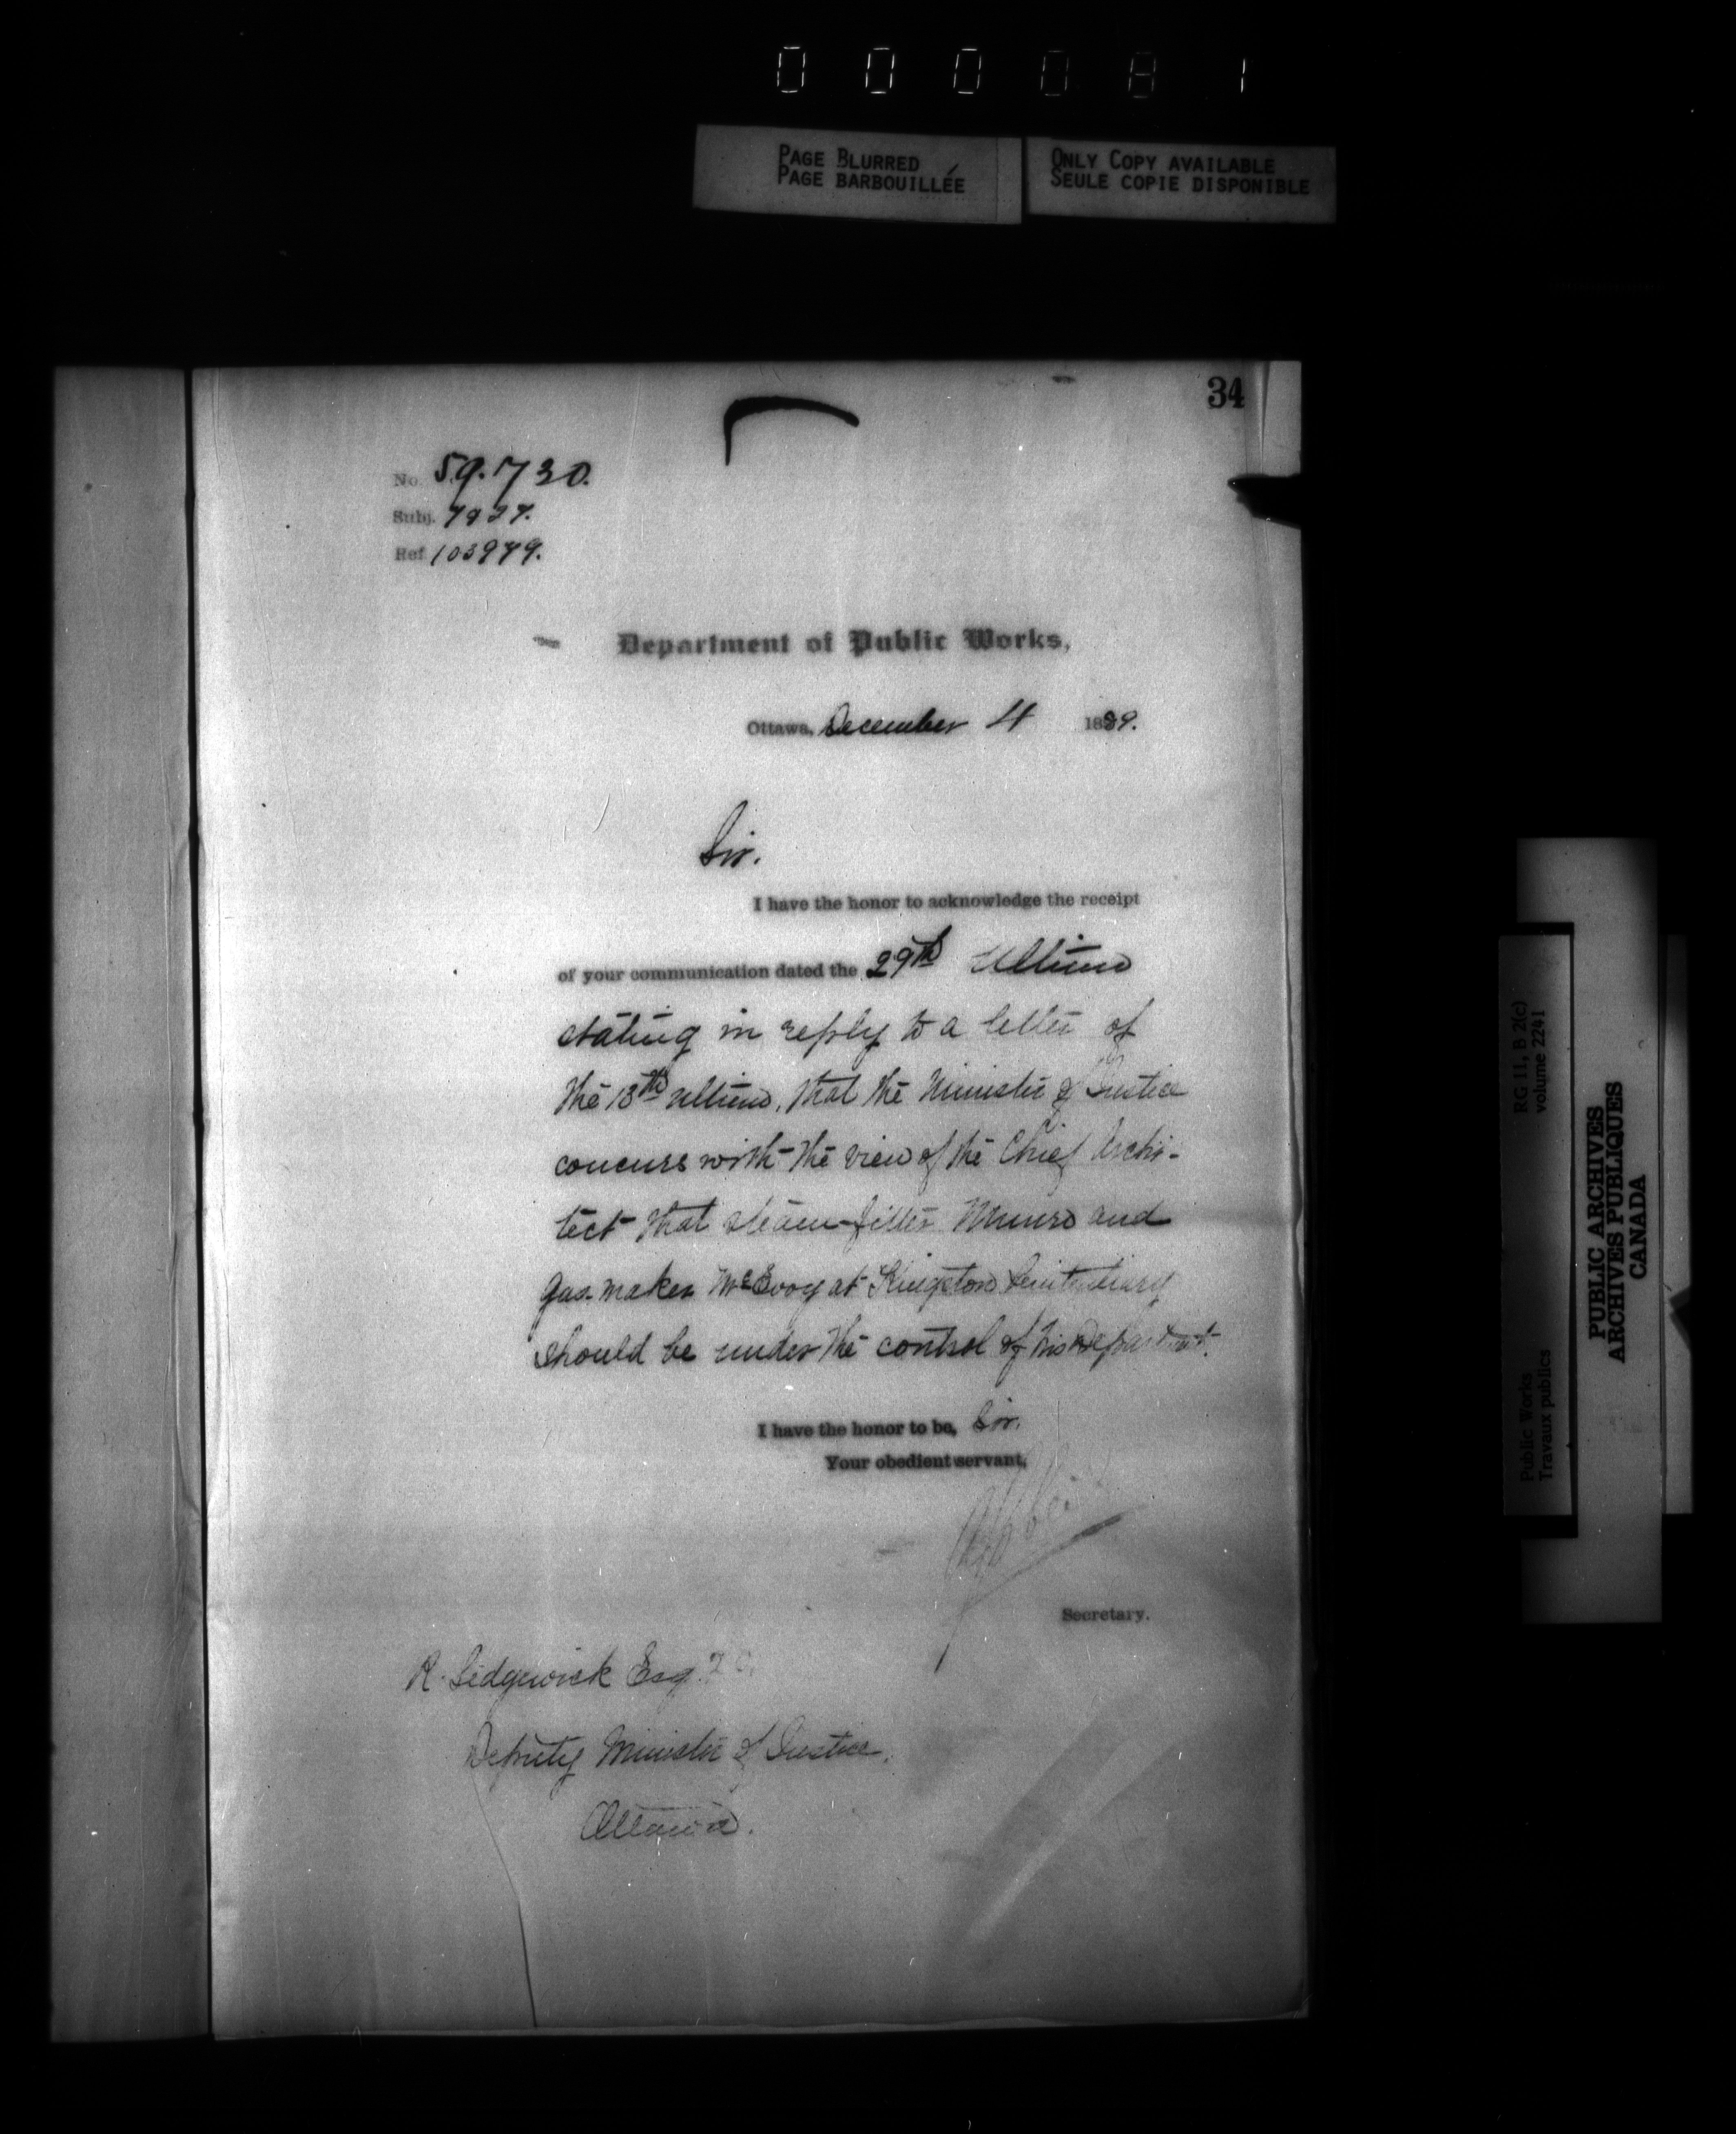 000081
PAGE BLURRED
PAGE BARBOUILLÉE
ONLY COPY AVAILABLE
SEULE COPIE DISPONIBLE
34
No. 59.730.
Subj.
Ref. 103979.
Department of Public Works,
Ottawa, December 4 1889.
Sir.
I have the honor to acknowledge the receipt
of your communication dated the 29th Ultimo
stating in reply to a letter of
the 13th ultimo, that the Minister of Justice
concurs with the view of the Chief Archi-
tect that steam-fitter Munro and
Gas-maker McEvoy at Kingston Penitentiary
should be under the control of his Department.
I have the honor to be, Sir.
Your obedient servant,
Secretary.
R. Sedgewick Esq.
Deputy Minister of Justice.
Ottawa.
RG 11, B 2(c)
volume 2241
Public Works
Travaux publics
PUBLIC ARCHIVES
ARCHIVES PUBLIQUES
CANADA